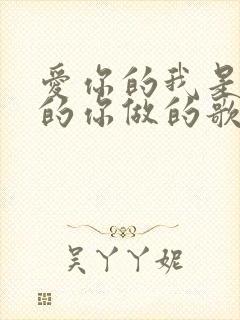 爱你的我是
的你做的歌
吴丫丫妮